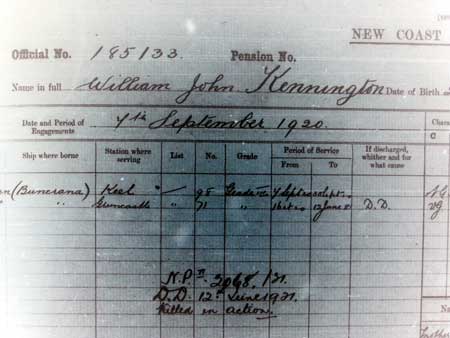 NEW COAST
Official No. 185133 Pension No.
Name in full William John Kennington Date of Birth
Date and Period of Engagements 7th September 1920.
Ship where borne Station where serving List No. Grade Period of Service From To If discharged, whither and for what cause Chara
C
(Buncrana) Keel " 98 7 Sept
" 71 " 13 June D.D. VG
N.P. 2068/21.
D.D. 12th June 1921.
Killed in action.
Na